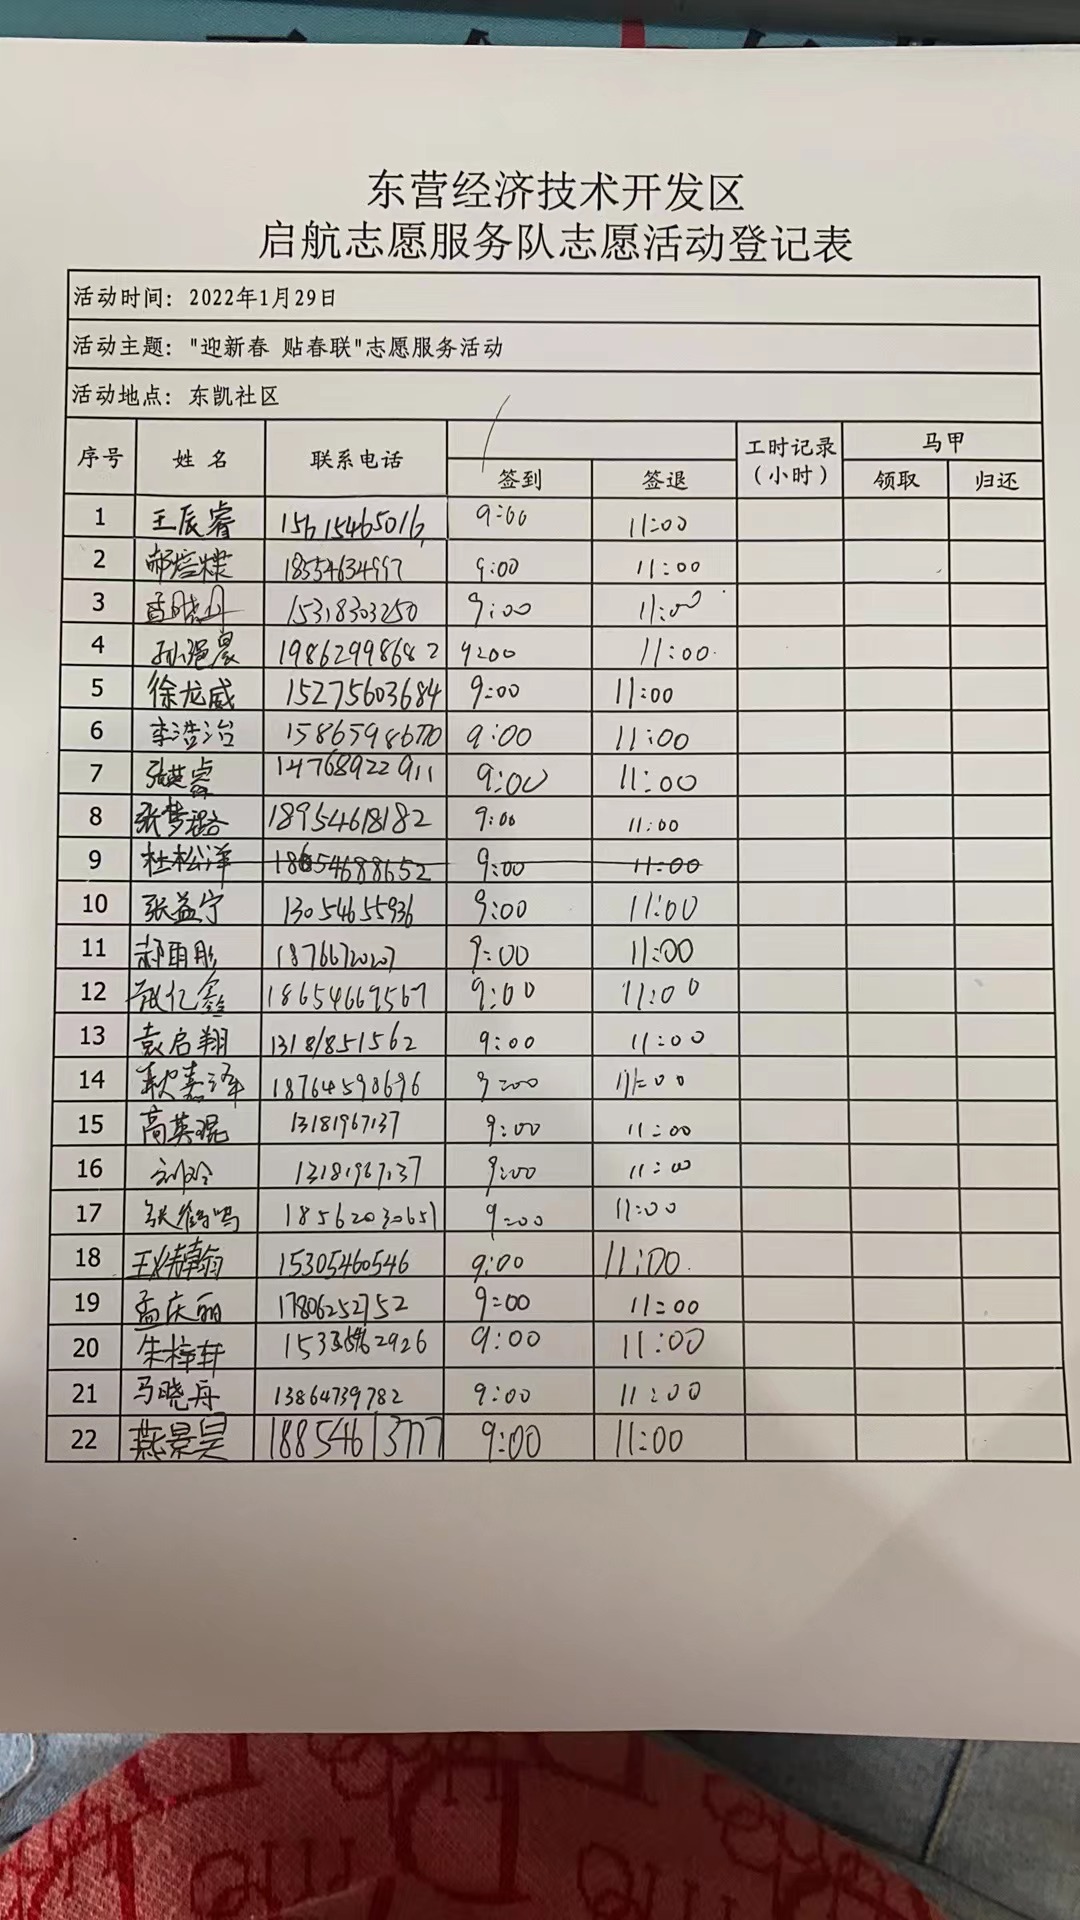 东营经济技术开发区
启航志愿服务队志愿活动登记表
活动时间：2022年1月29日
活动主题："迎新春 贴春联"志愿服务活动
活动地点：东凯社区
序号 姓名 联系电话 签到 签退 工时记录（小时） 马甲 领取 归还
1 王辰睿 15615465016 9:00 11:00
2 18554634997 9:00 11:00
3 孟晓丹 15318303250 9:00 11:00
4 19862998682 9:00 11:00
5 徐龙威 15275603684 9:00 11:00
6 李浩冶 15865986770 9:00 11:00
7 张芸睿 14768922911 9:00 11:00
8 张梦璐 18954618182 9:00 11:00
9 杜松洋 18654688652 9:00 11:00
10 张益宁 13054655936 9:00 11:00
11 郝雨彤 18766720207 9:00 11:00
12 张亿鑫 18654669567 9:00 11:00
13 袁启翔 13181851562 9:00 11:00
14 耿嘉泽 18764590696 9:00 11:00
15 高英琨 13181967137 9:00 11:00
16 刘玲 13181967137 9:00 11:00
17 18562030651 9:00 11:00
18 15305460546 9:00 11:00
19 孟庆丽 17806252752 9:00 11:00
20 朱梓轩 9:00 11:00
21 马晓丹 13864739782 9:00 11:00
22 燕景昊 18854613777 9:00 11:00